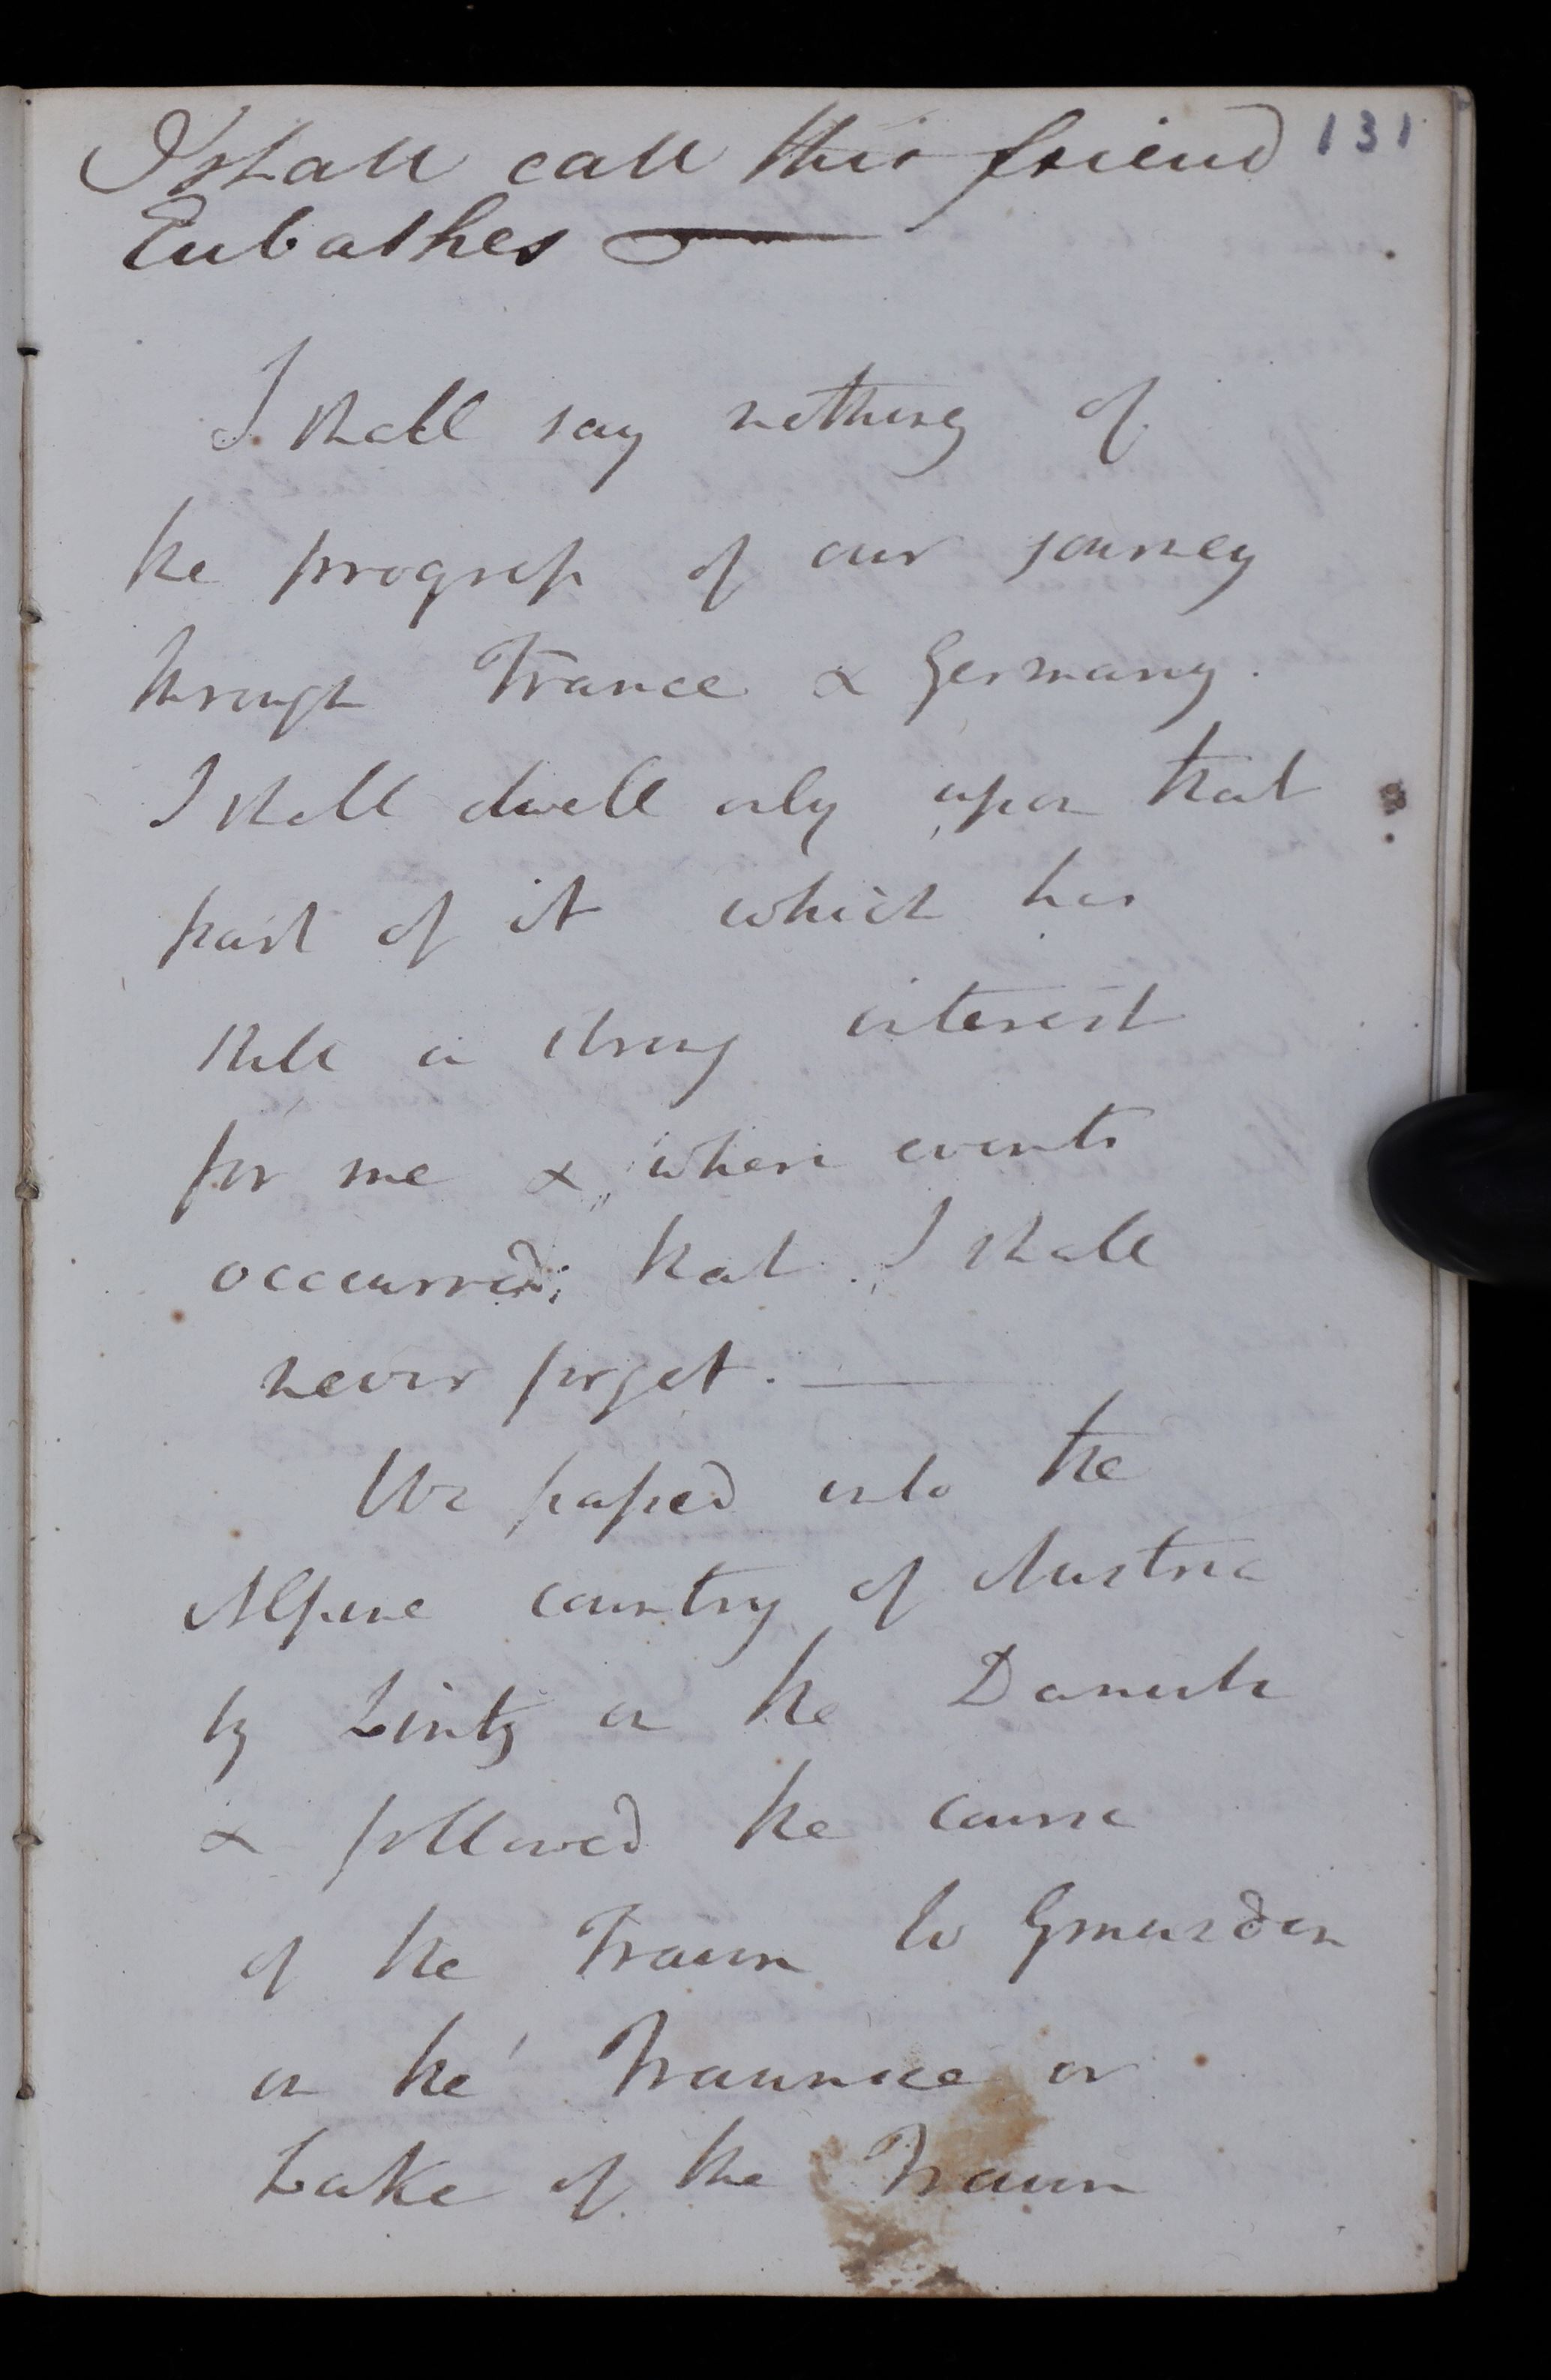 131
I shall call this friend
Eubathes —
I shall say nothing of
the progress of our journey
through France & Germany.
I shall dwell only upon that
part of it which has
still a strong interest
for me & where events
occurred, that I shall
never forget. —
We passed into the
Alpine country of Austria
by Lintz on the Danube
& followed the course
of the Traun to Gmunden
on the Traunsee or
Lake of the Traun